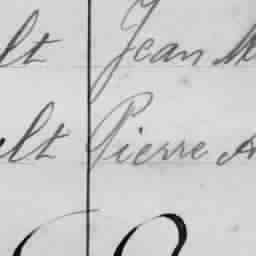 lt Jean M
elt Pierre A